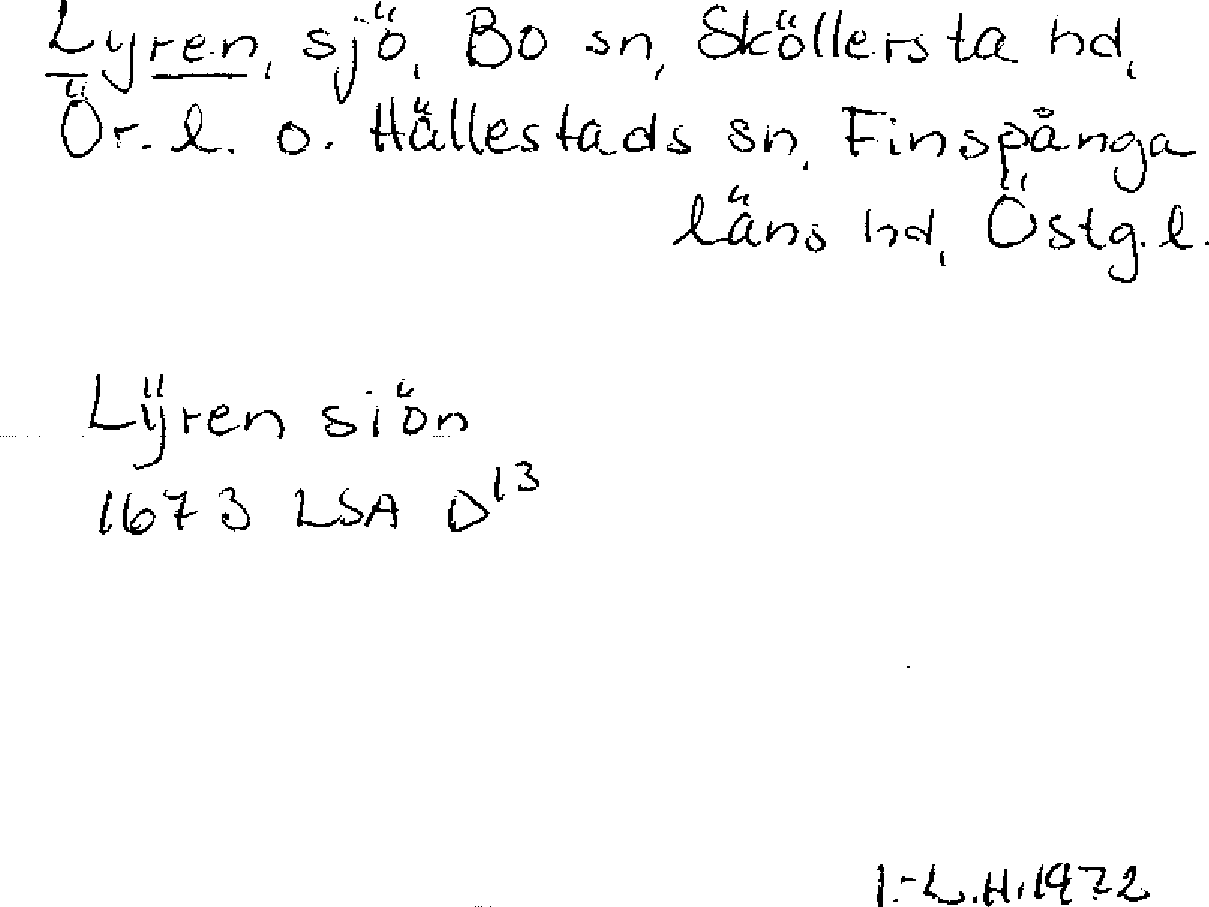 Lyren, sjö, Bo sn, Sköllersta hd,
Ör. l. o. Hällestads sn, Finspånga
läns hd, Östg. l.
Lÿren siön
1673 LSA D13
I.-L.H. 1972